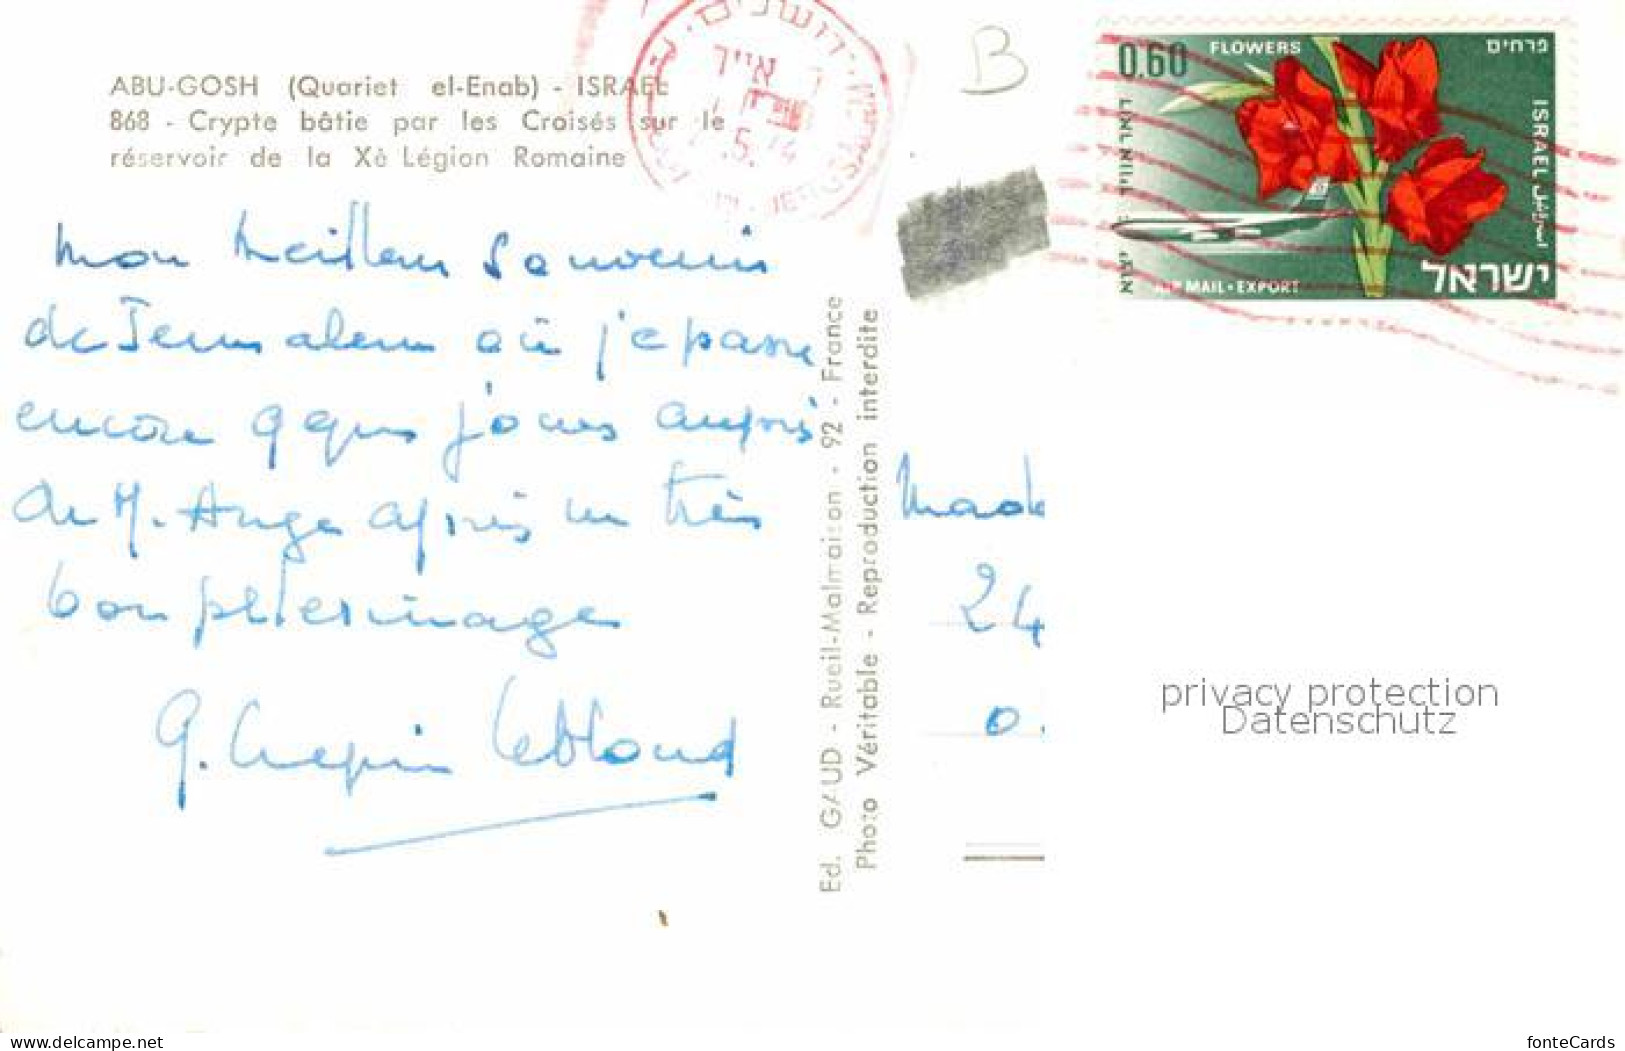 ABU-GOSH (Quariet el-Enab) - ISRAEL
868 - Crypte bâtie par les Croisés sur le
réservoir de la Xè Légion Romaine
mon meilleur souvenir
de Jerusalem où je passe
encore qques jours auprès
de M. Ange après un très
bon pèlerinage
G. Crepin Leblond
Ed. GAUD - Rueil-Malmaison - 92 - France
Photo Véritable - Reproduction interdite
B
ירושלים
אייר
5.
JERUSALEM
0.60
FLOWERS
פרחים
ISRAEL
اسرائيل
דואר אויר
יצוא
AIR MAIL • EXPORT
ישראל
24
0.
privacy protection
Datenschutz
www.delcampe.net
fonteCards